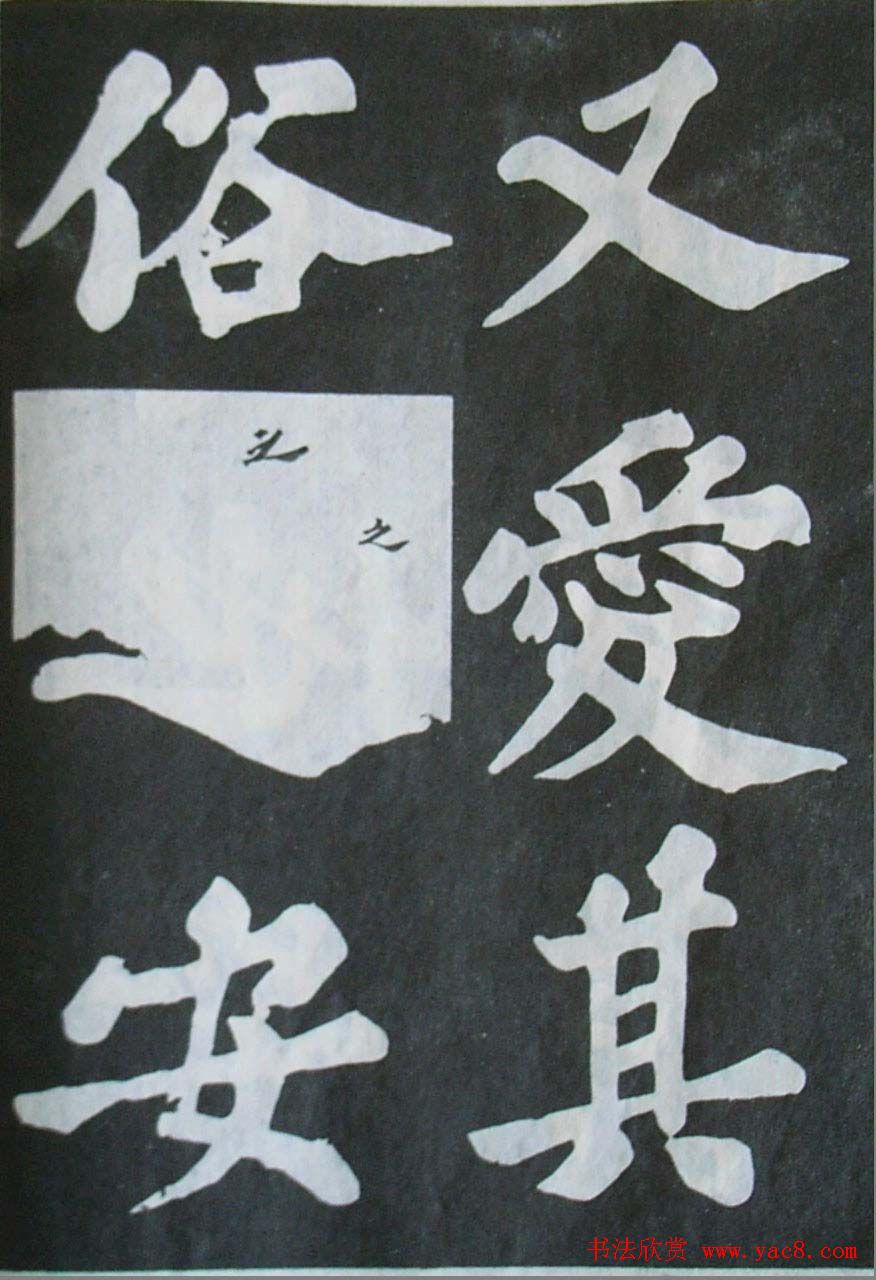 又愛其
俗之安
之
书法欣赏 www.yac8.com